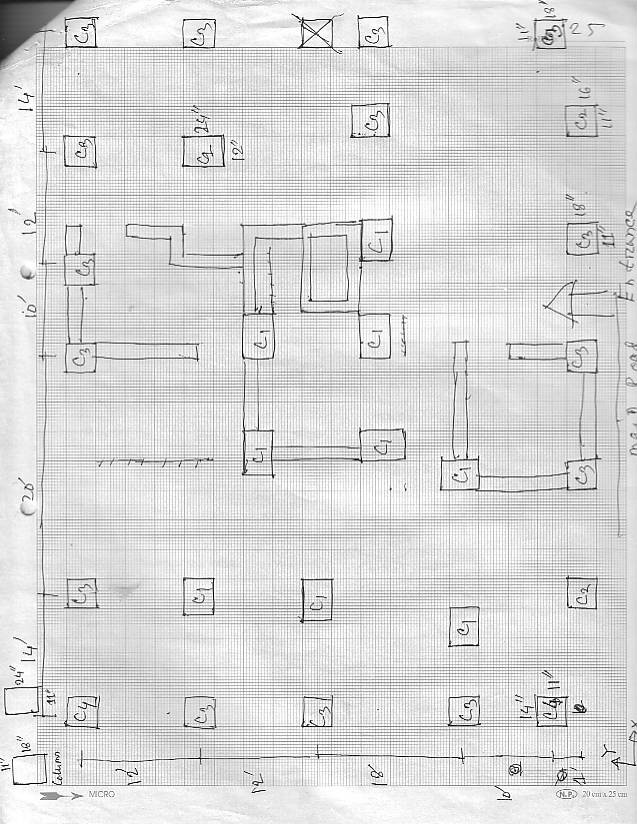 C3 C3 C3 11" C3 18" 25
14'
C3 C1 24" 12" C3 C2 16" 11"
12'
C3 C1 C3 18" 11"
Entrance
10'
C3 C1 C1 C3
main Road
C1 C1 C1 C3
20'
C3 C1 C1 C1 C2
24" 14'
11"
C4 C3 C3 C3 14" C4 11"
11" 18" Column
12' 12' 18' 10' Y X
MICRO N.P. 20 cm x 25 cm